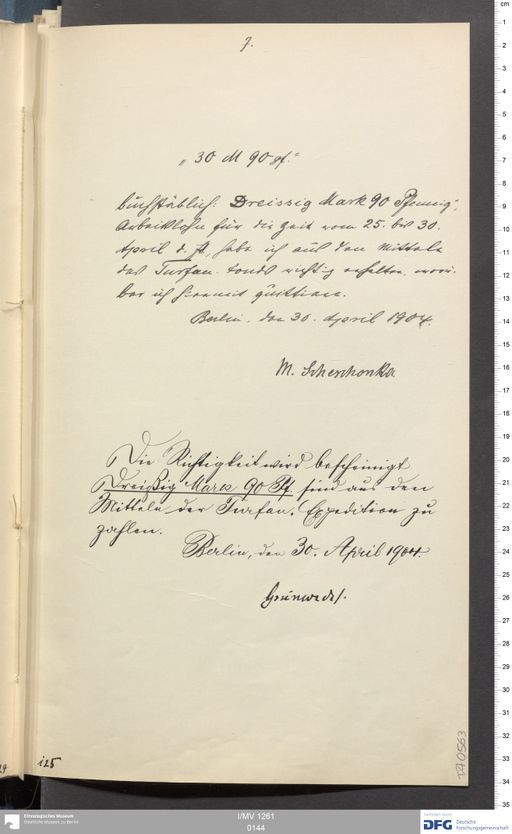 7.
„30 M 90 pf.“
buchstäblich: Dreissig Mark 90 Pfennig,
Arbeitslohn für die Zeit vom 25. bis 30.
April d. J., habe ich aus den Mitteln
des Turfan-Fonds richtig erhalten, worü-
ber ich hiermit quittiere.
Berlin, den 30. April 1904.
M. Scheschonka
Die Richtigkeit wird bescheinigt
Dreißig Mark 90 Pf. sind aus den
Mitteln der Turfan-Expedition zu
zahlen.
Berlin, den 30. April 1904.
Grünwedel.
125
TA 0563
Ethnologisches Museum
Staatliche Museen zu Berlin
I/MV 1261
0144
DFG Deutsche
Forschungsgemeinschaft